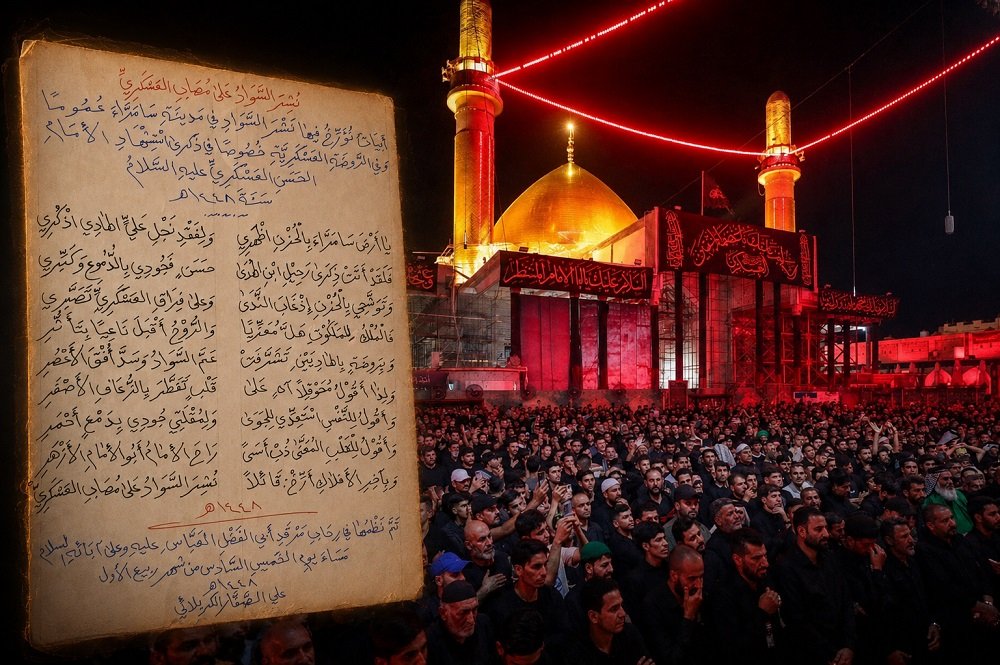 نُشِرَ السَّوَادُ عَلَىٰ مُصَابِ العَسْكَرِيِّ
أبيَاتٌ نُؤَرِّخُ فيهَا نَشْرَ السَّوَادِ فِي مَدِينَةِ سَامَرَّاءَ عُمُومًا
وَفِي الرَّوضَةِ العَسْكَرِيَّةِ خُصُوصًا فِي ذِكرَى اسْتِشْهَادِ الإمَامِ
الحَسَنِ العَسْكَرِيِّ عليهِ السَّلَامُ
سَنَةَ ١٤٤٨هـ
يَا أرْضَ سَامرَّاءَ بِالْحُزْنِ اظْهَرِي وَلِفَقْدِ نَجْلِ عَلِيٍّ الهَادِي اذْكُرِي
فَلَقَدْ أتَتْ ذِكْرَى رَحِيلِ ابْنِ الهُدَى حَسَنٍ، فَجُودِي بِالدُّمُوعِ وَكَبِّرِي
وَتَوَشَّحِي بِالْحُزْنِ إذْ غَابَ النَّدَى وَعَلَى فِرَاقِ العَسْكَرِيِّ تَصَبَّرِي
فَالمُلْكُ لِلْمَلَكُوتِ هَلَّ مُعَزِّيًا وَالرُّوحُ أقْبَلَ نَاعِيًا بِتَأَثُّرِ
وَبِرَوضَةٍ بِالهَادِيَيْنِ تَشَرَّفَتْ عَمَّ السَّوَادُ وَسَدَّ أفْقَ الأخْضَرِ
وَلِذَا أقُولُ مُحَوقِلًا آهٍ عَلَى قَلْبٍ تَقَطَّرَ بِالزُّعَافِ الأصْفَرِ
وَأقُولُ لِلنَّفْسِ اسْتَعِدِّي لِلْجَوَى وَلِمُقْلَتِي جُودِي بِدَمْعٍ أحْمَرِ
وَأقُولُ لِلْقَلْبِ المُعَنَّى ذُبْ أسًى رَاحَ الإمَامُ أبُو الإمَامِ الأزْهَرِ
وَبِآخِرِ الأفْلَاكِ أرِّخْ قَائلًا نُشِرَ السَّوَادُ عَلَىٰ مُصَابِ العَسْكَرِيِّ
١٤٤٨هـ
تَمَّ نَظْمُهَا فِي رِحَابِ مَرْقَدِ أبِي الفَضْلِ العَبَّاسِ عليهِ وعلى آبائهِ السلام
مَسَاءَ يومِ الخَمِيسِ السَّادِسِ مِنْ شَهْرِ رَبِيعٍ الأوَّلِ
١٤٤٨هـ
علي الصَّفَّار الكربلائي
السلام عليك يا ابا الامام المنتظر